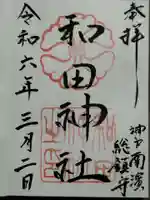 奉拝
神戸南濱
総鎮守
和田神社
令和六年三月二日